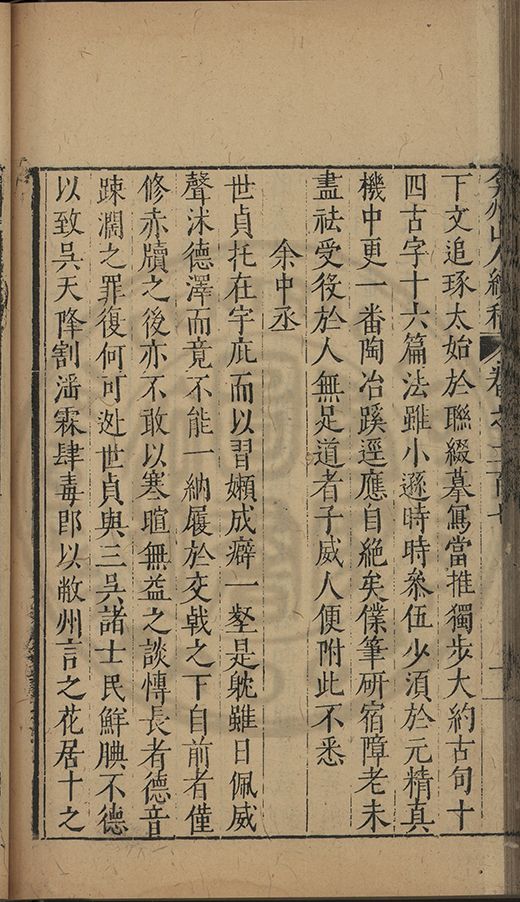 弇州山人續稿 卷之二百七 十一
下文追琢太始於聯綴摹寫當推獨步大約古句十
四古字十六篇法雖小遜時時叅伍少須於元精真
機中更一番陶冶蹊逕應自絕矣僕筆研宿障老未
盡祛受役於人無足道者子威人便附此不悉
余中丞
世貞托在宇庇而以習嬾成癖一壑是躭雖日佩威
聲沐德澤而竟不能一納履於文戟之下自前者僅
修赤牘之後亦不敢以寒暄無益之談慱長者德音
踈濶之罪復何可逃世貞與三吳諸士民鮮腆不德
以致吳天降割滛霖肆毒郎以敝州言之花居十之